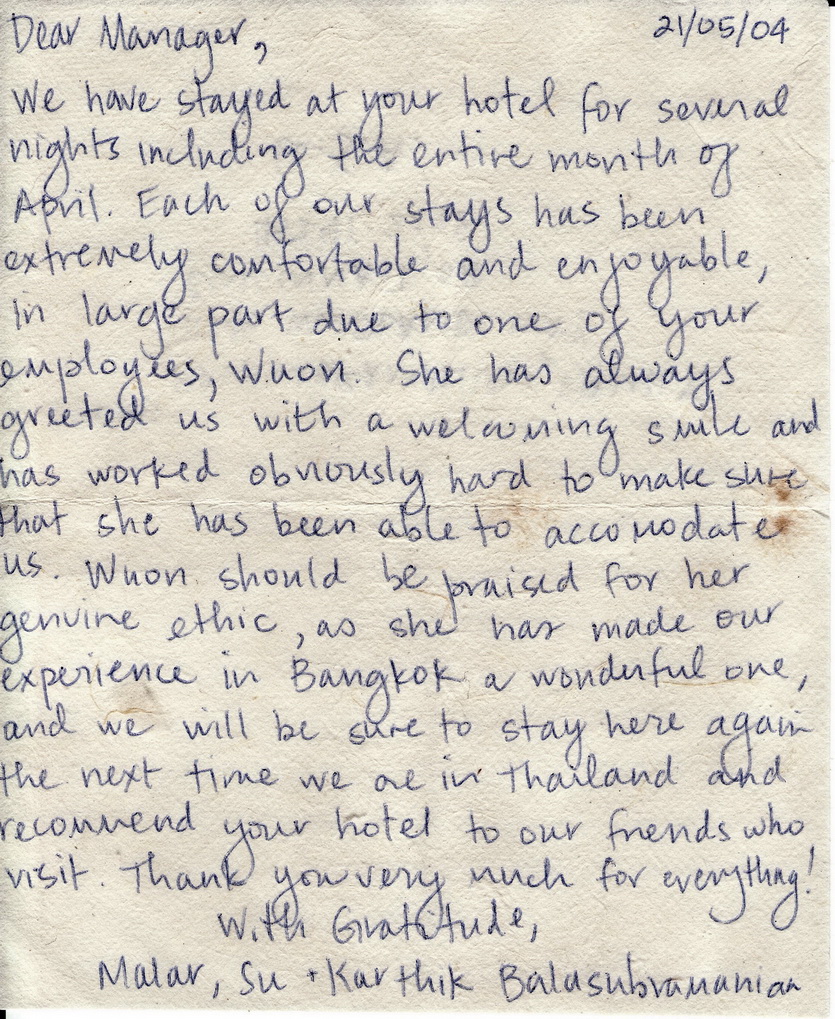 Dear Manager, 21/05/04
We have stayed at your hotel for several
nights including the entire month of
April. Each of our stays has been
extremely comfortable and enjoyable,
in large part due to one of your
employees, Wuon. She has always
greeted us with a welcoming smile and
has worked obviously hard to make sure
that she has been able to accomodate
us. Wuon should be praised for her
genuine ethic, as she has made our
experience in Bangkok a wonderful one,
and we will be sure to stay here again
the next time we are in Thailand and
recommend your hotel to our friends who
visit. Thank you very much for everything!
With Gratitude,
Malar, Su + Karthik Balasubramanian